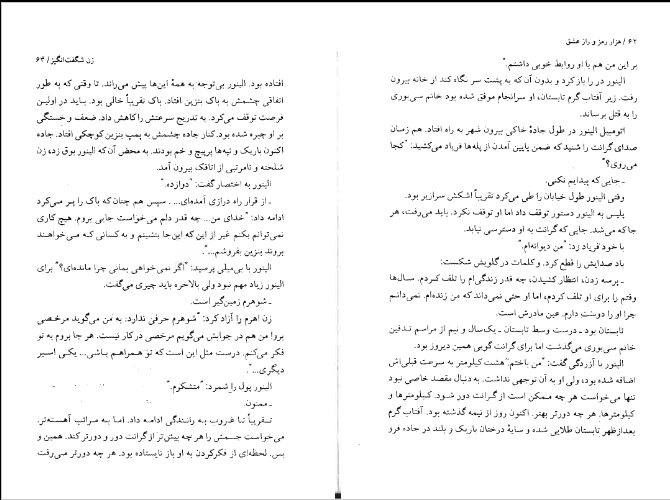 ۶۲ / هزار رمز و راز عشق
بر این من هم با او روابط خوبی داشتم."
الینور در را باز کرد و بدون آن که به پشت سر نگاه کند از خانه بیرون
رفت. زیر آفتاب گرم تابستان، او سرانجام موفق شده بود خانم سی‌بوری
را به قتل برساند.
اتومبیل الینور در طول جادهٔ خاکی بیرون شهر به راه افتاد. هم زمان
صدای گرانت را شنید که ضمن پایین آمدن از پله‌ها فریاد می‌کشید: "کجا
می‌روی؟"
ـ جایی که پیدایم نکنی.
وقتی الینور طول خیابان را طی می‌کرد تقریباً اشکش سرازیر بود.
پلیس به الینور دستور توقف داد اما او توقف نکرد. باید می‌رفت، هر
جا که می‌شد. جایی که گرانت به او دسترسی نیابد.
با خود فریاد زد: "من دیوانه‌ام."
باد صدایش را قطع کرد. و کلمات در گلویش شکست:
ـ پرسه زدن، انتظار کشیدن، چه قدر زندگی‌ام را تلف کردم. سال‌ها
وقتم را برای او تلف کردم، اما او حتی نمی‌داند که من زنده‌ام. نمی‌دانم
چرا او را دوست دارم. عین مادرش است.
تابستان بود ـ درست وسط تابستان ـ یک‌سال و نیم از مراسم تدفین
خانم سی‌بوری می‌گذشت اما برای گرانت گویی همین دیروز بود.
الینور با آزردگی گفت: "من باختم." هشت کیلومتر به سرعت قبلی‌اش
اضافه شده بود، ولی او به آن توجهی نداشت. به دنبال مقصد خاصی نبود
تنها می‌خواست هر چه ممکن است از گرانت دور شود. کیلومترها و
کیلومترها. هر چه دورتر بهتر. اکنون روز از نیمه گذشته بود. آفتاب گرم
بعدازظهر تابستان طلایی شده و سایهٔ درختان باریک و بلند در جاده فرو
زن شگفت‌انگیز / ۶۳
افتاده بود. الینور بی‌توجه به همهٔ این‌ها پیش می‌راند. تا وقتی که به طور
اتفاقی چشمش به باک بنزین افتاد. باک تقریباً خالی بود. باید در اولین
فرصت توقف می‌کرد. به تدریج سرعتش را کاهش داد. ضعف و خستگی
بر او چیره شده بود. کنار جاده چشمش به پمپ بنزین کوچکی افتاد. جاده
اکنون باریک و تپه‌ها پرپیچ و خم بودند. به محض آن که الینور بوق زد، زن
شلخته و نامرتبی از اتاقک بیرون آمد.
الینور به اختصار گفت: "دوازده."
ـ از قرار راه درازی آمده‌ای... سپس هم چنان که باک را پر می‌کرد
ادامه داد: "خدای من... چه قدر دلم می‌خواست جایی بروم. هیچ کاری
نمی‌توانم بکنم غیر از این که این‌جا بنشینم و به کسانی که می‌خواهند
بروند بنزین بفروشم...".
الینور با بی‌میلی پرسید: "اگر نمی‌خواهی بمانی چرا مانده‌ای؟" برای
الینور زیاد مهم نبود ولی بالاخره باید چیزی می‌گفت.
ـ شوهرم زمین‌گیر است.
زن اهرم را آزاد کرد: "شوهرم حرفی ندارد. به من می‌گوید مرخصی
برو! من هم در جوابش می‌گویم مرخصی در کار نیست. هر جا بروم به تو
فکر می‌کنم. درست مثل این است که تو همراهم باشی... یکی اسیر
دیگری...".
الینور پول را شمرد: "متشکرم."
ـ ممنون.
تقریباً تا غروب به رانندگی ادامه داد. اما به مراتب آهسته‌تر.
می‌خواست جسمش را هر چه بیش‌تر از گرانت دور و دورتر کند. همین و
بس. لحظه‌ای از فکرکردن به او باز نایستاده بود. هر چه دورتر می‌رفت